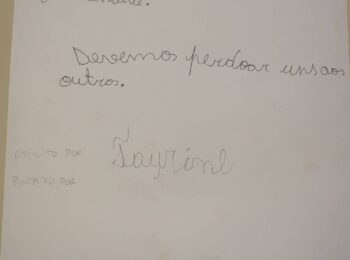 Devemos perdoar uns aos
outros.
ESCRITO POR
Tayrine
PINTADO POR